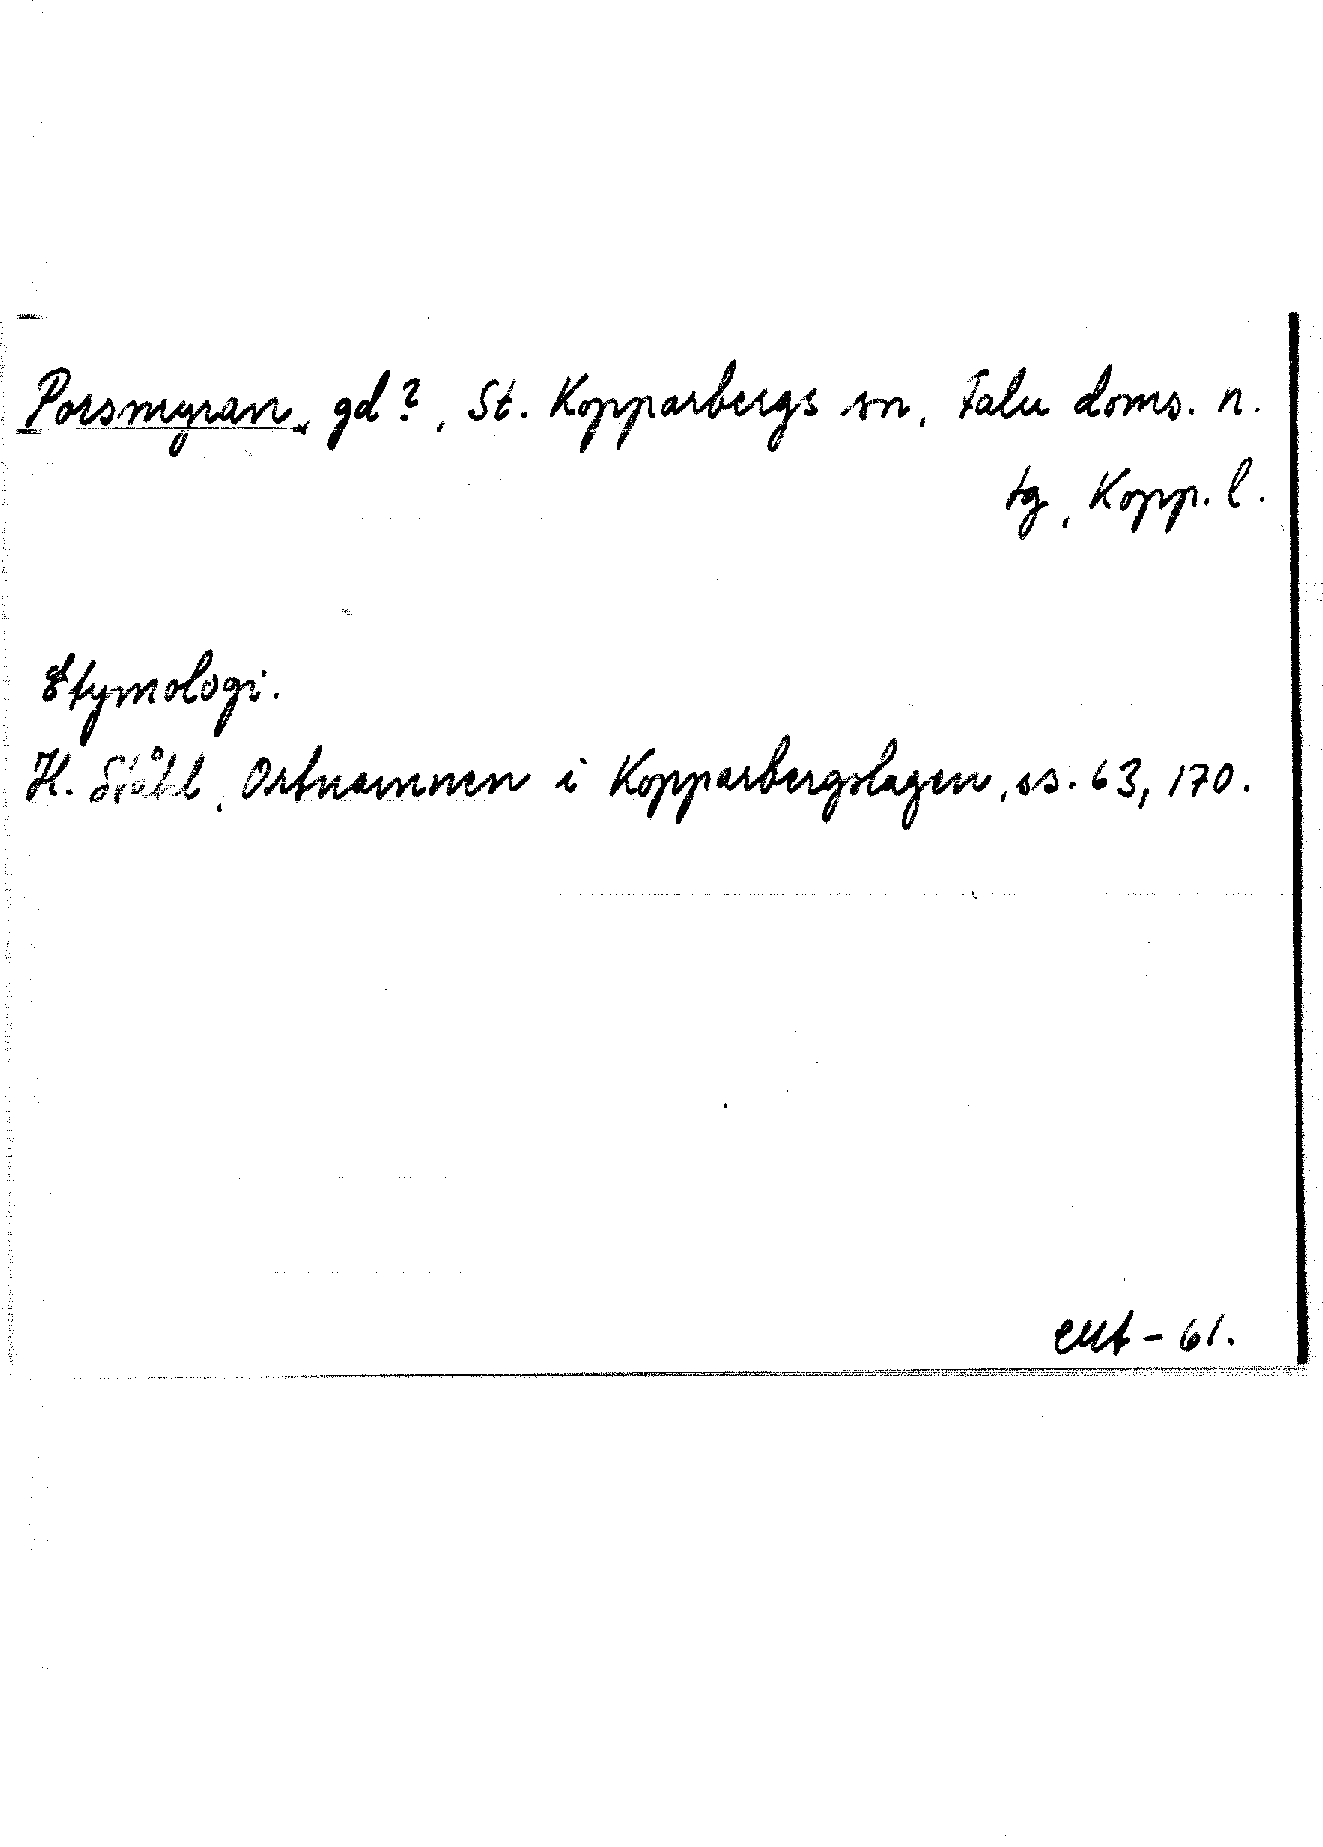 Porsmyran, gd?, St. Kopparbergs sn, Falu doms. n.
tg, Kopp. l.
Etymologi.
H. Ståhl, Ortnamnen i Kopparbergslagen, ss. 63, 170.
- 61.